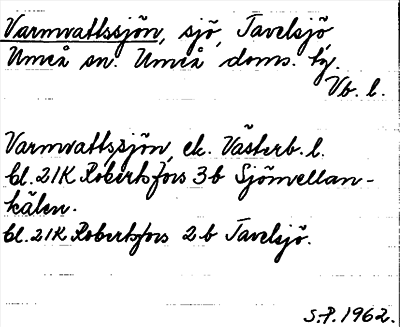 Varmvattssjön, sjö, Tavelsjö,
Umeå sn. Umeå doms. by.
Vb. l.
Varmvattssjön, ek. Västerb. l.
bl. 21K Robertsfors 3b Sjömellan-
kälen.
bl. 21K Robertsfors 2b Tavelsjö.
S.P. 1962.